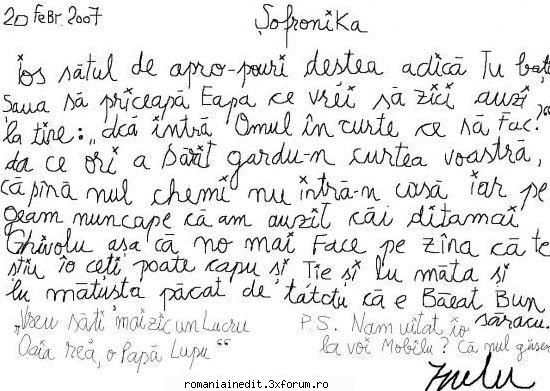 20 Febr. 2007
Șofronika
ios sătul de apro-pouri destea adică Tu bați
Saua să priceapă Eapa ce vrei să zici auzi
la tine: „dcă intră Omul în curte ce să Fac?"
da ce ori a sărit gardu-n curtea voastră,
că pînă nul chemi nu întră-n casă iar pe
geam nuncape că am auzit căi ditamai
Ghivolu asa că no mai Face pe zîna că te
știu io ceți poate capu și Tie și lu măta și
lu mătușta păcat de tătctu că e Băeat Bun
săracu.
„Vreu săti maizic un Lucru
Oaia rea, o Papă Lupu"
P.S. Nam uitat io
la voi Mobilu? Că nul găsesc
romaniainedit.3xforum.ro